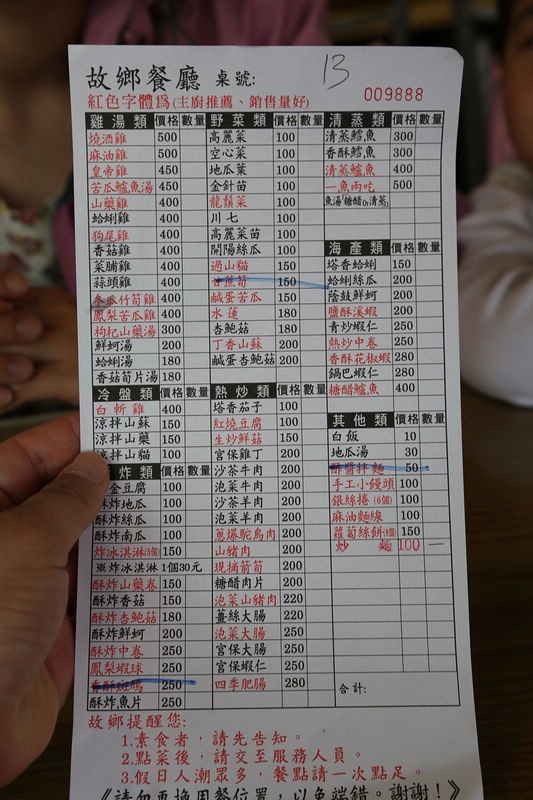 故鄉餐廳 桌號: 13
紅色字體為(主廚推薦、銷售量好) 009888
雞湯類 價格 數量
燒酒雞 500
麻油雞 500
皇帝雞 450
苦瓜鱸魚湯 450
山藥雞 400
蛤蜊雞 400
狗尾雞 400
香菇雞 400
菜脯雞 400
蒜頭雞 400
冬瓜竹筍雞 400
鳳梨苦瓜雞 400
枸杞山藥湯 300
鮮蚵湯 200
蛤蜊湯 180
香菇筍片湯 180
冷盤類 價格 數量
白斬雞 400
涼拌山蘇 150
涼拌山藥 150
涼拌山貓 100
炸類 價格 數量
金豆腐 100
酥炸地瓜 100
酥炸絲瓜 100
酥炸南瓜 100
炸冰淇淋(5個) 150
※炸冰淇淋1個30元
酥炸山藥卷 150
酥炸香菇 150
酥炸杏鮑菇 180
酥炸鮮蚵 200
酥炸中卷 250
鳳梨蝦球 250
香酥斑鳩 250
酥炸魚片 250
野菜類 價格 數量
高麗菜 100
空心菜 100
地瓜葉 100
金針苗 100
龍鬚菜 100
川七 100
高麗菜苗 100
開陽絲瓜 100
過山貓 150
甘蔗筍 150
鹹蛋苦瓜 150
水蓮 180
杏鮑菇 180
丁香山蘇 200
鹹蛋杏鮑菇 200
熱炒類 價格 數量
塔香茄子 100
紅燒豆腐 100
生炒鮮菇 150
宮保雞丁 200
沙茶牛肉 200
泡菜牛肉 200
沙茶羊肉 200
泡菜羊肉 200
蔥爆鴕鳥肉 200
山豬肉 200
現摘箭筍 200
糖醋肉片 200
泡菜山豬肉 220
薑絲大腸 220
泡菜大腸 250
宮保大腸 250
宮保蝦仁 250
四季肥腸 280
清蒸類 價格 數量
清蒸鱈魚 300
香酥鱈魚 300
清蒸鱸魚 400
一魚兩吃 500
魚湯(糖醋or清蒸)
海產類 價格 數量
塔香蛤蜊 150
蛤蜊絲瓜 200
蔭鼓鮮蚵 200
鹽酥溪蝦 200
青炒蝦仁 250
熱炒中卷 250
香酥花椒蝦 280
鍋巴蝦仁 280
糖醋鱸魚 400
其他類 價格 數量
白飯 10
地瓜湯 30
酢醬拌麵 50
手工小饅頭 100
銀絲捲(6個) 100
麻油麵線 100
蘿蔔絲餅(8個) 150
炒麵 100 一
合計:
故鄉提醒您:
1.素食者，請先告知。
2.點菜後，請交至服務人員。
3.假日人潮眾多，餐點請一次點足。
《請勿更換用餐位置，以免端錯。謝謝!》